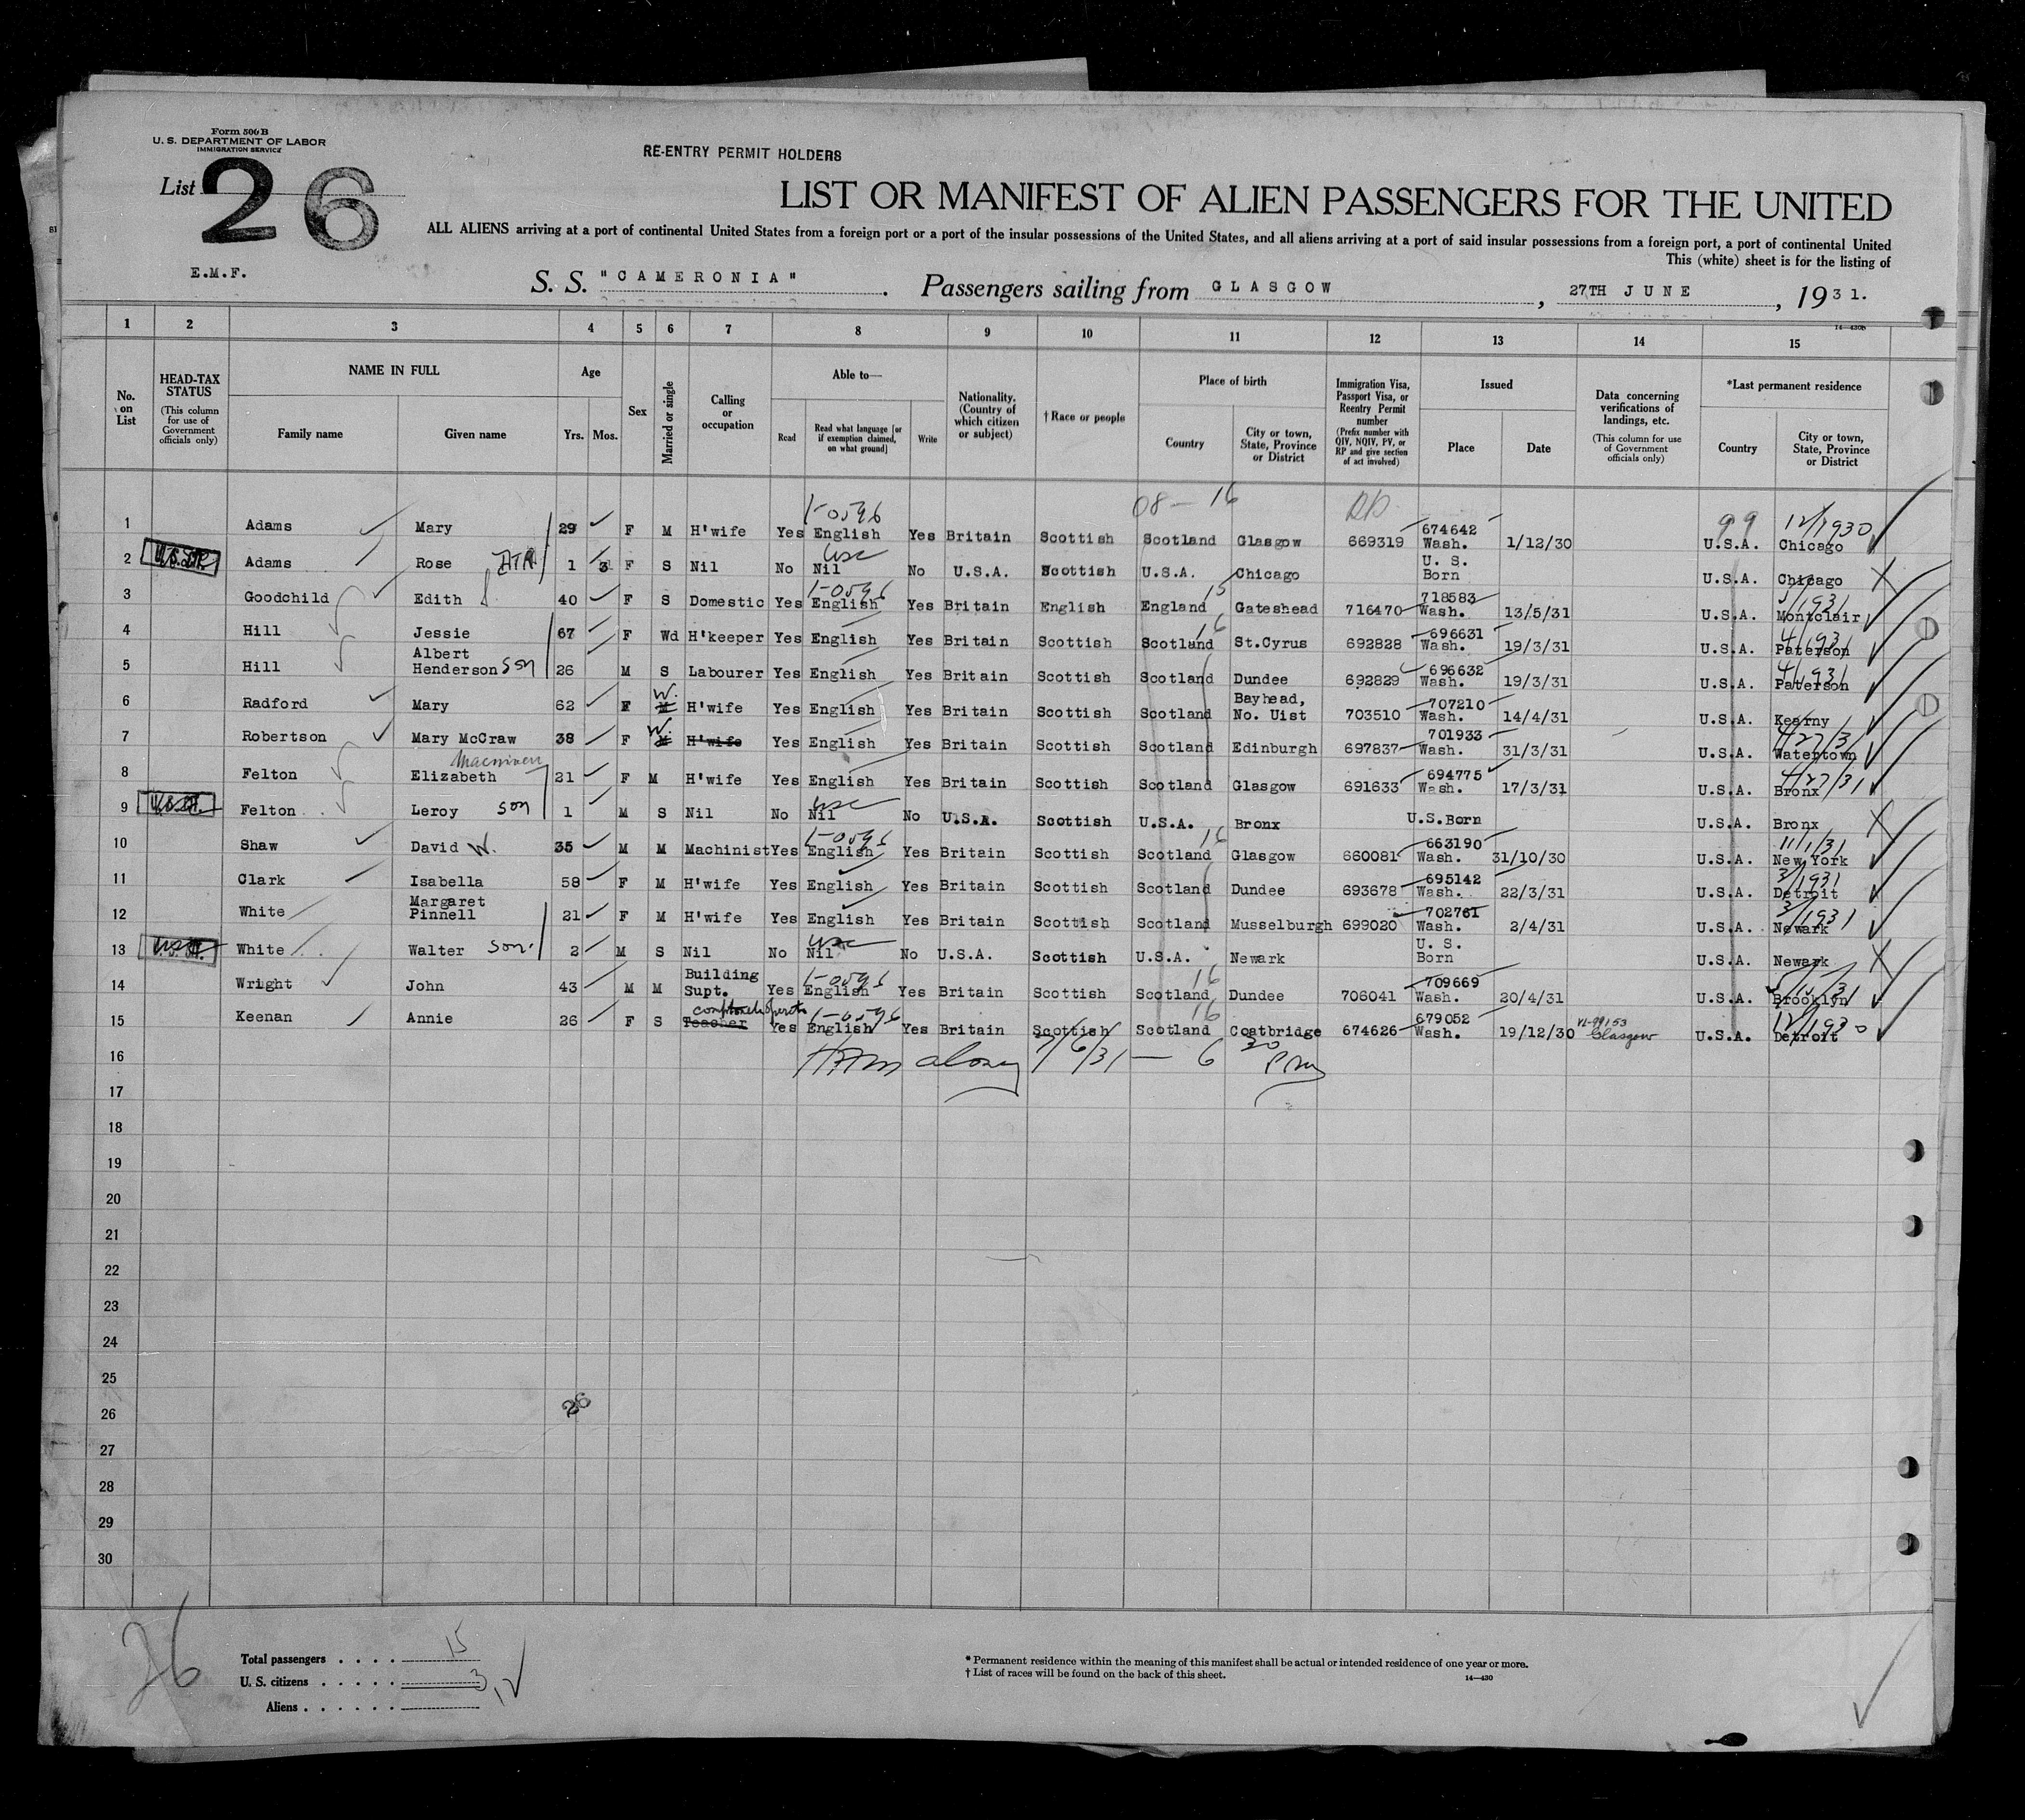 Form 506 B
U. S. DEPARTMENT OF LABOR
IMMIGRATION SERVICE
RE-ENTRY PERMIT HOLDERS
List 26
LIST OR MANIFEST OF ALIEN PASSENGERS FOR THE UNITED
ALL ALIENS arriving at a port of continental United States from a foreign port or a port of the insular possessions of the United States, and all aliens arriving at a port of said insular possessions from a foreign port, a port of continental United
This (white) sheet is for the listing of
E.M.F.
S. S. "CAMERONIA". Passengers sailing from GLASGOW, 27TH JUNE, 1931.
14—430B
1 2 3 4 5 6 7 8 9 10 11 12 13 14 15
No. on List
HEAD-TAX STATUS (This column for use of Government officials only)
NAME IN FULL Family name Given name
Age Yrs. Mos.
Sex
Married or single
Calling or occupation
Able to— Read Read what language [or if exemption claimed, on what ground] Write
Nationality. (Country of which citizen or subject)
† Race or people
Place of birth Country City or town, State, Province or District
Immigration Visa, Passport Visa, or Reentry Permit number (Prefix number with QIV, NQIV, PV, or RP and give section of act involved)
Issued Place Date
Data concerning verifications of landings, etc. (This column for use of Government officials only)
*Last permanent residence Country City or town, State, Province or District
08 — 16
1 Adams Mary 29 F M H'wife Yes English Yes Britain Scottish Scotland Glasgow 669319 674642 Wash. 1/12/30 99 U.S.A. 12/1930 Chicago
2 Adams Rose 1 3 F S Nil No usc Nil No U.S.A. Scottish U.S.A. Chicago U. S. Born U.S.A. Chicago
3 Goodchild Edith 40 F S Domestic Yes English Yes Britain English England 15 Gateshead 716470 718583 Wash. 13/5/31 U.S.A. 5/1931 Montclair
4 Hill Jessie 67 F Wd H'keeper Yes English Yes Britain Scottish Scotland 16 St.Cyrus 692828 696631 Wash. 19/3/31 U.S.A. 4/1931 Paterson
5 Hill Albert Henderson son 26 M S Labourer Yes English Yes Britain Scottish Scotland Dundee 692829 696632 Wash. 19/3/31 U.S.A. 4/1931 Paterson
6 Radford Mary 62 F W. M H'wife Yes English Yes Britain Scottish Scotland Bayhead, No. Uist 703510 707210 Wash. 14/4/31 U.S.A. Kearny
7 Robertson Mary McCraw 38 F W. M H'wife Yes English Yes Britain Scottish Scotland Edinburgh 697837 701933 Wash. 31/3/31 U.S.A. 4/27/31 Watertown
8 Felton Macniven Elizabeth 21 F M H'wife Yes English Yes Britain Scottish Scotland Glasgow 691633 694775 Wash. 17/3/31 U.S.A. 4/27/31 Bronx
9 Felton Leroy son 1 M S Nil No usc Nil No U.S.A. Scottish U.S.A. Bronx U.S.Born U.S.A. Bronx
10 Shaw David W. 35 M M Machinist Yes English Yes Britain Scottish Scotland 16 Glasgow 660081 663190 Wash. 31/10/30 U.S.A. 11/1/31 New York
11 Clark Isabella 58 F M H'wife Yes English Yes Britain Scottish Scotland Dundee 693678 695142 Wash. 22/3/31 U.S.A. 3/1931 Detroit
12 White Margaret Pinnell 21 F M H'wife Yes English Yes Britain Scottish Scotland Musselburgh 699020 702761 Wash. 2/4/31 U.S.A. 3/1931 Newark
13 White Walter son 2 M S Nil No usc Nil No U.S.A. Scottish U.S.A. Newark U. S. Born U.S.A. Newark
14 Wright John 43 M M Building Supt. Yes English Yes Britain Scottish Scotland 16 Dundee 706041 709669 Wash. 20/4/31 U.S.A. Brooklyn
15 Keenan Annie 26 F S Teacher Yes English Yes Britain Scottish Scotland 16 Coatbridge 674626 679052 Wash. 19/12/30 VL-99153 Glasgow U.S.A. 12/1930 Detroit
16
17
18
19
20
21
22
23
24
25
26
27
28
29
30
26
26
Total passengers . . . . 15
U. S. citizens . . . . . 3
Aliens . . . . . . 12
* Permanent residence within the meaning of this manifest shall be actual or intended residence of one year or more.
† List of races will be found on the back of this sheet.
14—430